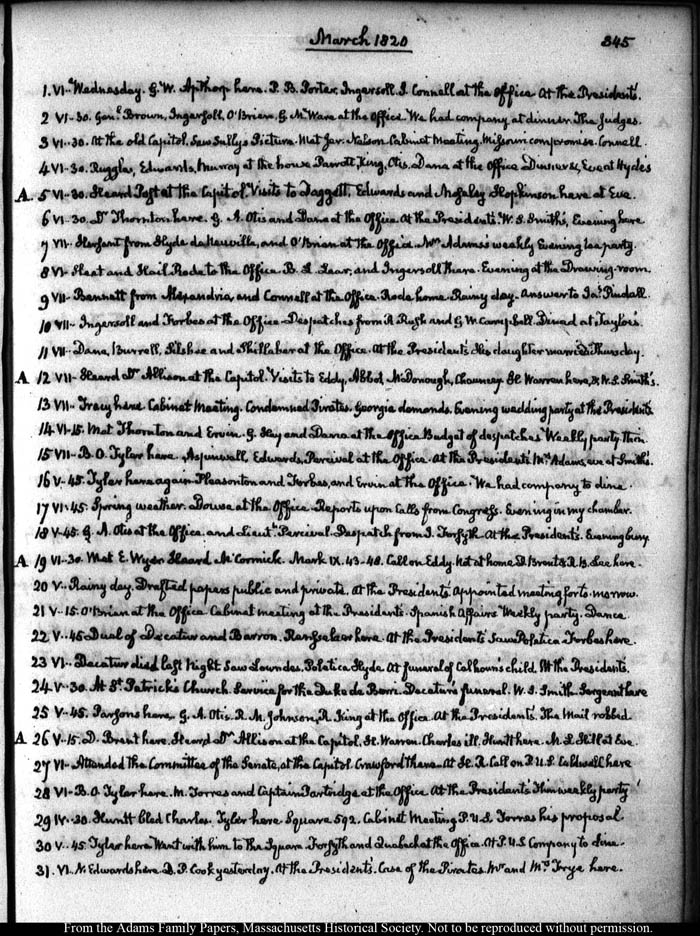 March 1820
345
1. VI. Wednesday. G. W. Apthorp here. P. B. Porter Ingersoll. J. Connell at the Office. At the Presidents.
2 VI-30. Genl. Brown, Ingersoll, O'Brien, G. McWare at the Office. We had company at dinner. The Judges.
3 VI-30. At the old Capitol. Saw Sully's Picture. Met Jer. Nelson. Cabinet Meeting. Missouri compromise. Connell
4 VI-30. Ruggles, Edwards, Murray at the house Parrott, King, Otis. Dana at the Office Dinner & Eve at Hyde's
A. 5 VI-30. Heard Post at the Capitol. Visits to Daggett, Edwards and McLaley Hopkinson here at Eve.
6 VI-30. Dr. Thornton here. G. A. Otis and Dana at the Office. At the Presidents. W. S. Smith's, Evening here
7 VII. from Hyde de Neuville, and O'Brian at the Office. Mrs. Adams's weekly Evening tea party.
8 VI. Sleet and Hail. Rode to the Office B. L. Lear, and Ingersoll there. Evening at the Drawing-room.
9 VII. Bennett from Alexandria and Connell at the Office. Rode home. Rainy day. Answer to Jas. Pindall.
10 VII. Ingersoll and Forbes at the Office. Despatches from R. Rush and G. W. Campbell. Dined at Tayloe's.
11 VII. Dana, Burrell, Silsbee and Shillaber at the Office. At the Presidents. His daughter married Thursday.
A 12 VII. Heard Dr. Allison at the Capitol. Visits to Eddy, Abbot McDonough, Chauncey St. Warren here, & W. S. Smith's.
13 VII. Tracy here Cabinet Meeting. Condemned Pirates. Georgia demands. Evening wedding party at the Presidents
14. VI-15. Met Thornton and Ervin. G. Hay and Dana at the Office Budget of despatches. Weekly party thin.
15 VII. B. O. Tyler here. Aspinwall, Edwards, Percival at the Office. At the Presidents. Mrs. Adams eve at Smith's.
16 V-45. Tyler here again Pleasonton and Forbes, and Ervin at the Office. We had company to dine.
17 VI-45. Spring weather. Dowse at the Office. Reports upon Calls from Congress. Evening in my chamber.
18 V-45. G. A. Otis at the Office. and Lieutt. Percival. Despatch from J. Forsyth. At the Presidents. Evening busy
A 19 VI-30. Met E. Wyer. Heard McCormick. Mark IX. 43-48. Call on Eddy. Not at home D. Brent & R. B. Lee here.
20 V. Rainy day. Drafted papers public and private. At the Presidents. Appointed meeting for to-morrow.
21 V-15. O'Brian at the Office. Cabinet meeting at the Presidents. Spanish Affairs. Weekly party. Dance.
22 V-45 Duel of Decatur and Barron. Rensselaer here. At the Presidents. Saw Poletica. Forbes here.
23 VI. Decatur died last Night. Saw Lowndes. Poletica. Hyde. At funeral of Calhoun's child. At the Presidents.
24 V-30. At St. Patrick's Church. Service for the Duke de Berri. Decatur's funeral. W. S. Smith. Sergeant here
25 V-45. Parsons here. G. A. Otis. R. M. Johnson, R. King at the Office. At the Presidents. The Mail robbed
A 26 V-15. D. Brent here. Heard Dr. Allison at the Capitol. St. Warren. Charles ill. Huntt here. M. L. Hill at Eve.
27 VI. Attended the Committee of the Senate, at the Capitol. Crawford there. At H. R. Call on P. U. S. Caldwell here
28 VI. B. O. Tyler here. M. Torres and Captain Partridge at the Office. At the Presidents. Thin weekly party
29 IV-30. Huntt bled Charles. Tyler here Square 592. Cabinet Meeting P. U. S. Torres his proposal.
30 V-45 Tyler here. Went with him to the Square. Forsyth and Dubach at the Office. At P. U. S. Company to dine.
31. VI. N. Edwards here. D. P. Cook yesterday. At the Presidents. Case of the Pirates. Mr. and Mrs. Frye here.
From the Adams Family Papers, Massachusetts Historical Society. Not to be reproduced without permission.